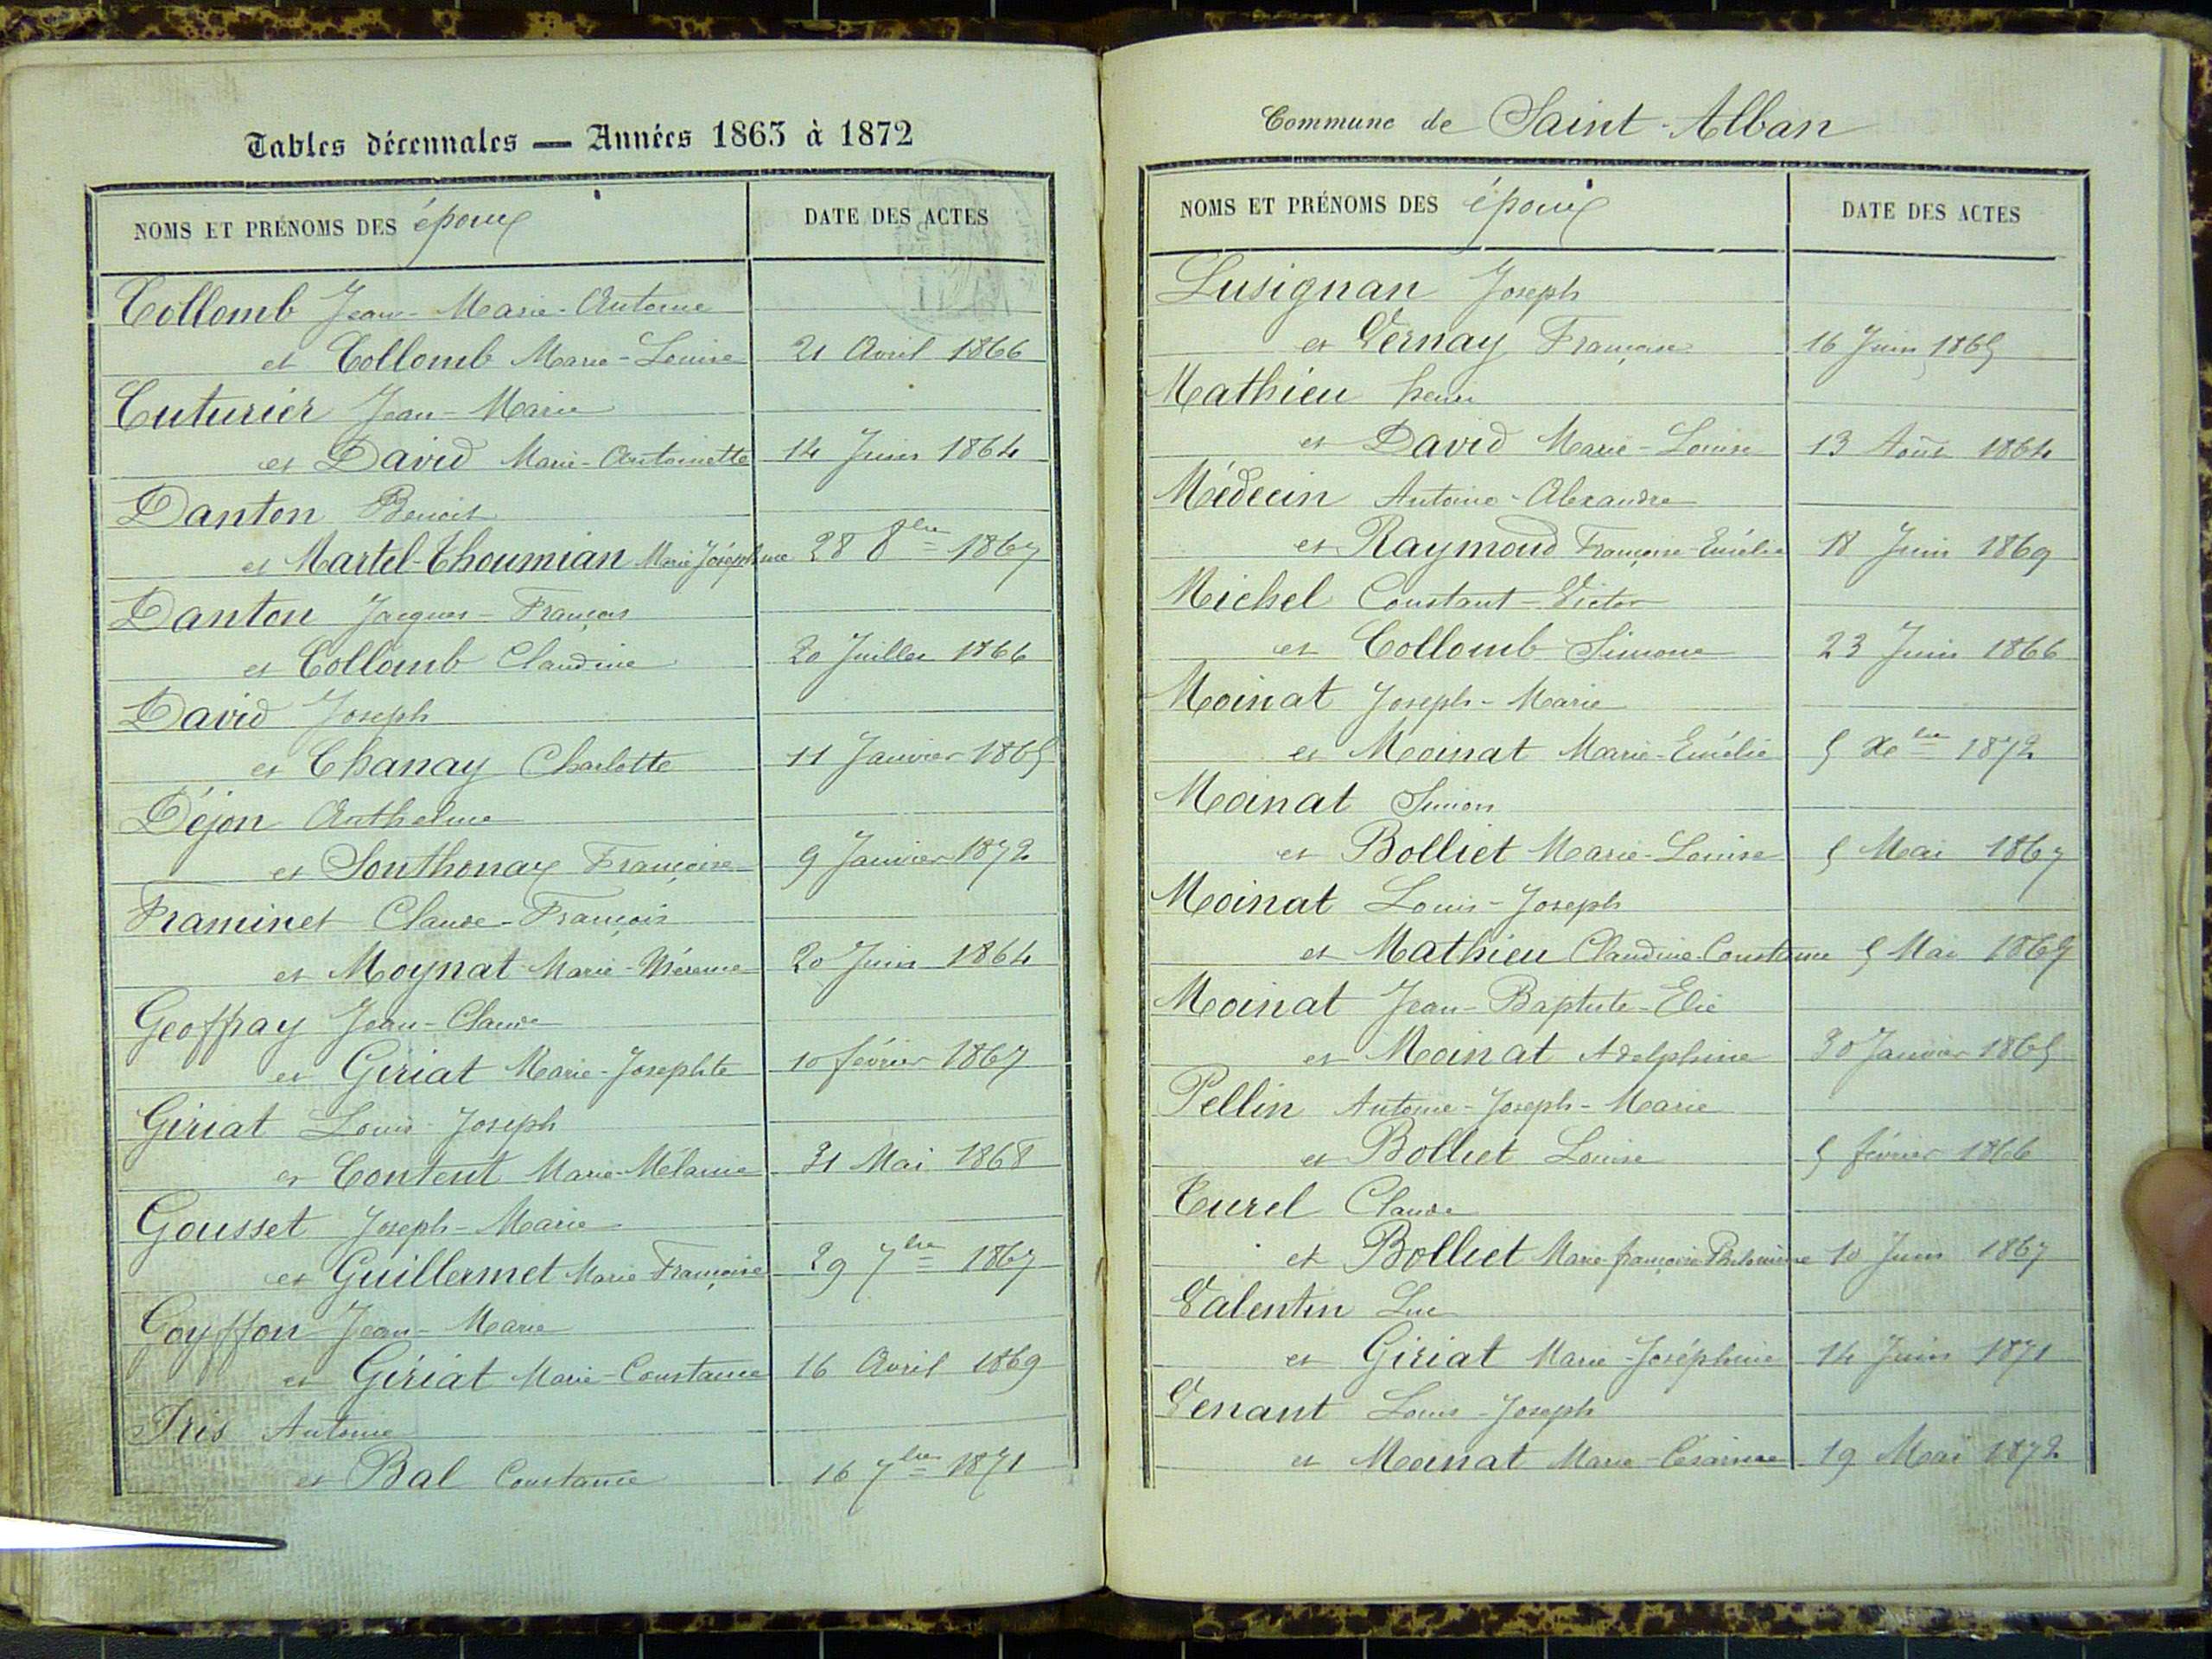 Tables décennales — Années 1863 à 1872
NOMS ET PRÉNOMS DES époux DATE DES ACTES
Collomb Jean-Marie-Antoine
et Collomb Marie-Louise 21 Avril 1866
Cuturier Jean-Marie
et David Marie-Antoinette 14 Juin 1864
Danton Benoit
et Martel-Thoumian Marie Joséphine 28 8bre 1867
Danton Jacques-François
et Collomb Claudine 20 Juillet 1866
David Joseph
et Chanay Charlotte 11 Janvier 1865
Déjon Anthelme
et Southonax Françoise 9 Janvier 1872
Framinet Claude-François
et Moynat Marie- 20 Juin 1864
Geoffray Jean-Claude
et Giriat Marie-Josephte 10 février 1867
Giriat Louis-Joseph
et Content Marie-Mélanie 31 Mai 1868
Gousset Joseph-Marie
et Guillermet Marie Françoise 29 7bre 1867
Goyffon Jean-Marie
et Giriat Marie-Constance 16 Avril 1869
Iris Antoine
et Bal Constance 16 7bre 1871
Commune de Saint-Alban
NOMS ET PRÉNOMS DES époux DATE DES ACTES
Lusignan Joseph
et Vernay Françoise 16 Juin 1865
Mathieu henri
et David Marie-Louise 13 Août 1864
Médecin Antoine-Alexandre
et Raymond Françoise-Emélie 18 Juin 1869
Michel Constant-Victor
et Collomb Simone 23 Juin 1866
Moinat Joseph-Marie
et Moinat Marie-Emélie 5 Xbre 1872
Moinat Simon
et Bolliet Marie-Louise 5 Mai 1867
Moinat Louis-Joseph
et Mathieu Claudine-Constance 5 Mai
Moinat Jean-Baptiste-Elie
et Moinat Adelphine 30 Janvier 1865
Pellin Antoine-Joseph-Marie
et Bolliet Louise 5 février 1866
Turel Claude
et Bolliet Marie françoise Philomène 10 Juin 1867
Valentin Luc
et Giriat Marie-Joséphine 14 Juin 1871
Venant Louis-Joseph
et Moinat Marie-Césarine 19 Mai 1872